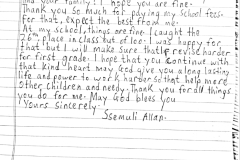 and your family? I hope you are fine.
Thank you so much for paying my school fees.
For that, expect the best from me.
At my school, things are fine. I caught the
26th place in class but of 100. I was happy for
that but I will make sure that I revise harder
for first grade. I hope that you continue with
that kind heart may God give you along lasting
life and power to work harder so that help more
other children and needy. Thank you for all things
you do for me. May God bless you
Yours sincerely
Ssemuli Allan.